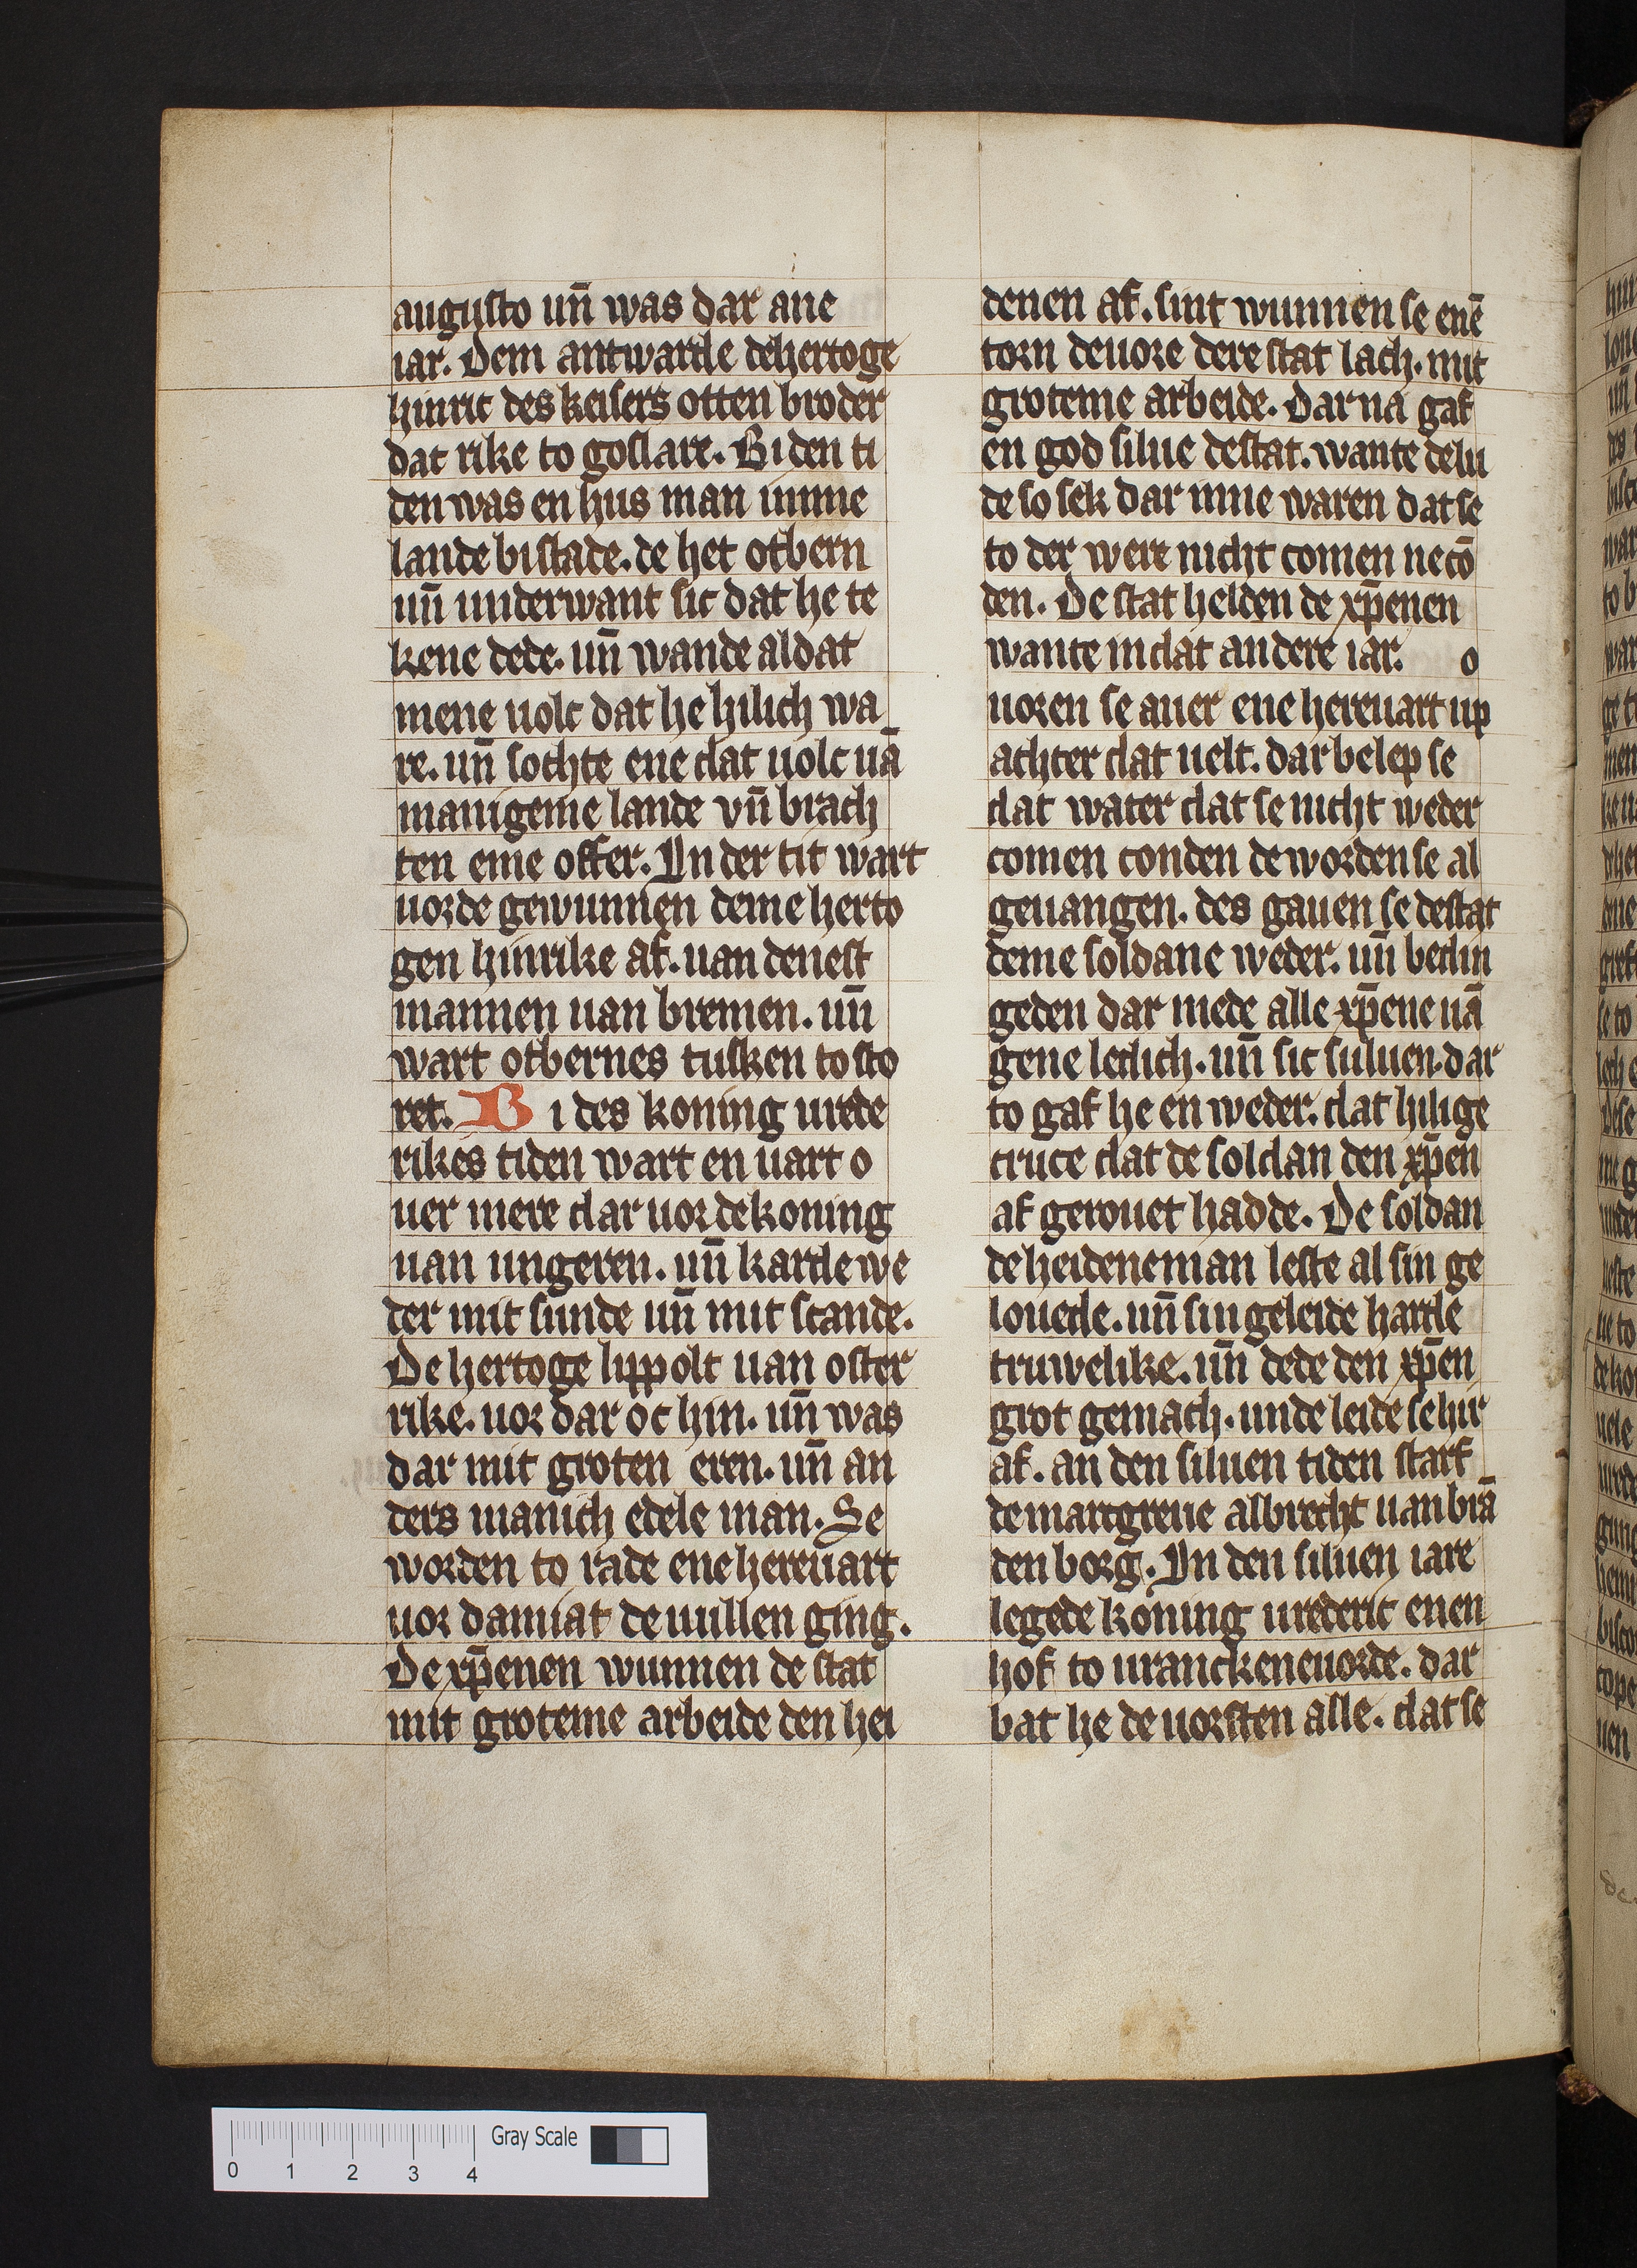 augusto un̄ was dar ane
iar. Dem antwarde de hertoge
hinric des keisers otten broder
dat rike to goslare. Bi den ti
den was en hus man inme
lande bi stade. de het otbern
un̄ underwant sic dat he te
kene dede. un̄ wande al dat
mene uolc dat he hilich wa
re. un̄ sochte ene dat uolc uā
manigeme lande vn̄ brach
ten eme offer. In der tit wart
uorde gewunnen deme herto
gen hinrike af. uan den est
mannen uan bremen. un̄
wart otbernes tusken tosto
ret. Bi des koning urede
rikes tiden wart en uart o
uer mere dar uor de koning
uan ungeren. un̄ karde we
der mit sunde un̄ mit scande.
De hertoge lippolt uan oster
rike. uor dar oc hin. un̄ was
dar mit groten eren. un̄ an
ders manich edele man. Se
worden to rade ene hereuart
uor damiat de uullen ging.
De xp̄enen wunnen de stat
mit groteme arbeide den hei
denen af. sint wunnen se enē
torn de uore dere stat lach. mit
groteme arbeide. Dar na gaf
en god silue de stat. wante de lu
de so sek dar inne waren dat se
to der were nicht comen ne cō
den. De stat helden de xp̄enen
wante in dat andere iar. o
uoren se auer ene hereuart up
achter dat uelt. dar belep se
dat water dat se nicht weder
comen conden de worden se al
geuangen. des gauen se de stat
deme soldane weder. un̄ bedin
geden dar mede alle xp̄ene uā
gene ledich. un̄ sic suluen. dar
to gaf he en weder. dat hilige
cruce dat de soldan den xp̄en
af gerouet hadde. De soldan
de heidene man leste al sin ge
louede. un̄ sin geleide harde
truwelike. un̄ dede den xp̄en
grot gemach. unde leide se hir
af. an den siluen tiden starf
de marcgreue albrecht uan brā
den borg. In den siluen iare
legede koning urederic enen
hof to uranckeneuorde. dar
bat he de uorsten alle. dat se